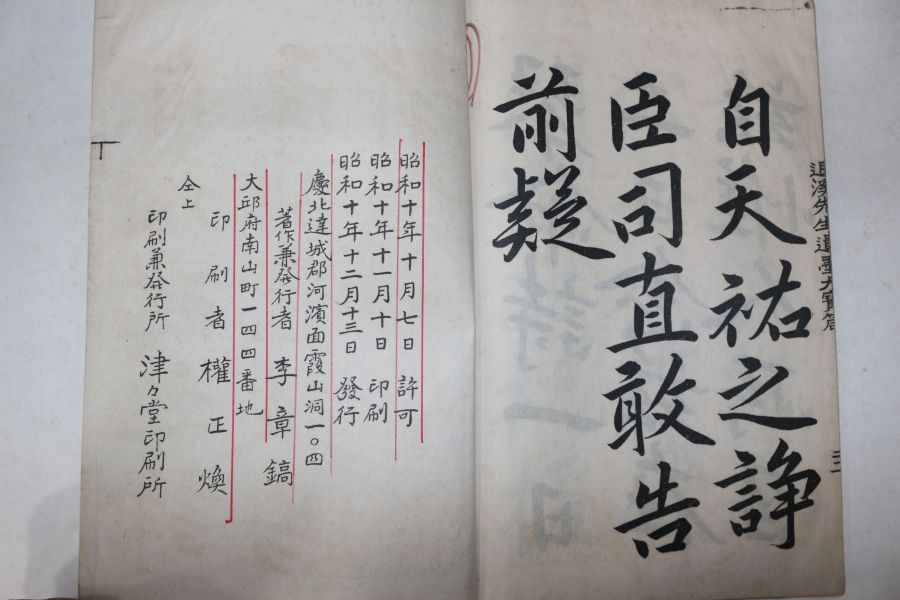 自天祐之諍
臣司直敢告
前疑
退溪先生遺墨大寶箴
昭和十年十月七日 許可
昭和十年十一月十日 印刷
昭和十年十二月十三日 發行
慶北達城郡河濱面霞山洞一〇四
著作兼發行者 李章鎬
大邱府南山町一四四番地
印刷者 權正煥
仝上
印刷兼発行所 津々堂印刷所